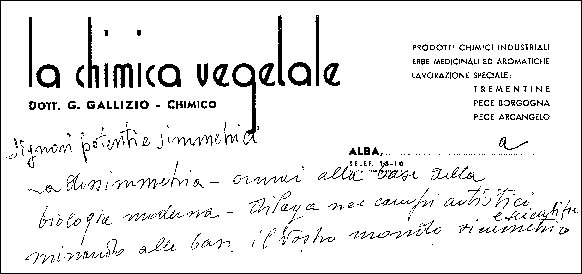 la chimica vegetale
DOTT. G. GALLIZIO - CHIMICO
PRODOTTI CHIMICI INDUSTRIALI
ERBE MEDICINALI ED AROMATICHE
LAVORAZIONE SPECIALE:
TREMENTINE
PECE BORGOGNA
PECE ARCANGELO
ALBA, a
TELEF. 18-10
Signori potenti e simmetria
La dissimmetria - ormai alla base della
biologia moderna - dilaga nei campi artistici
e scientifici
minando alle basi il vostro mondo simmetrico